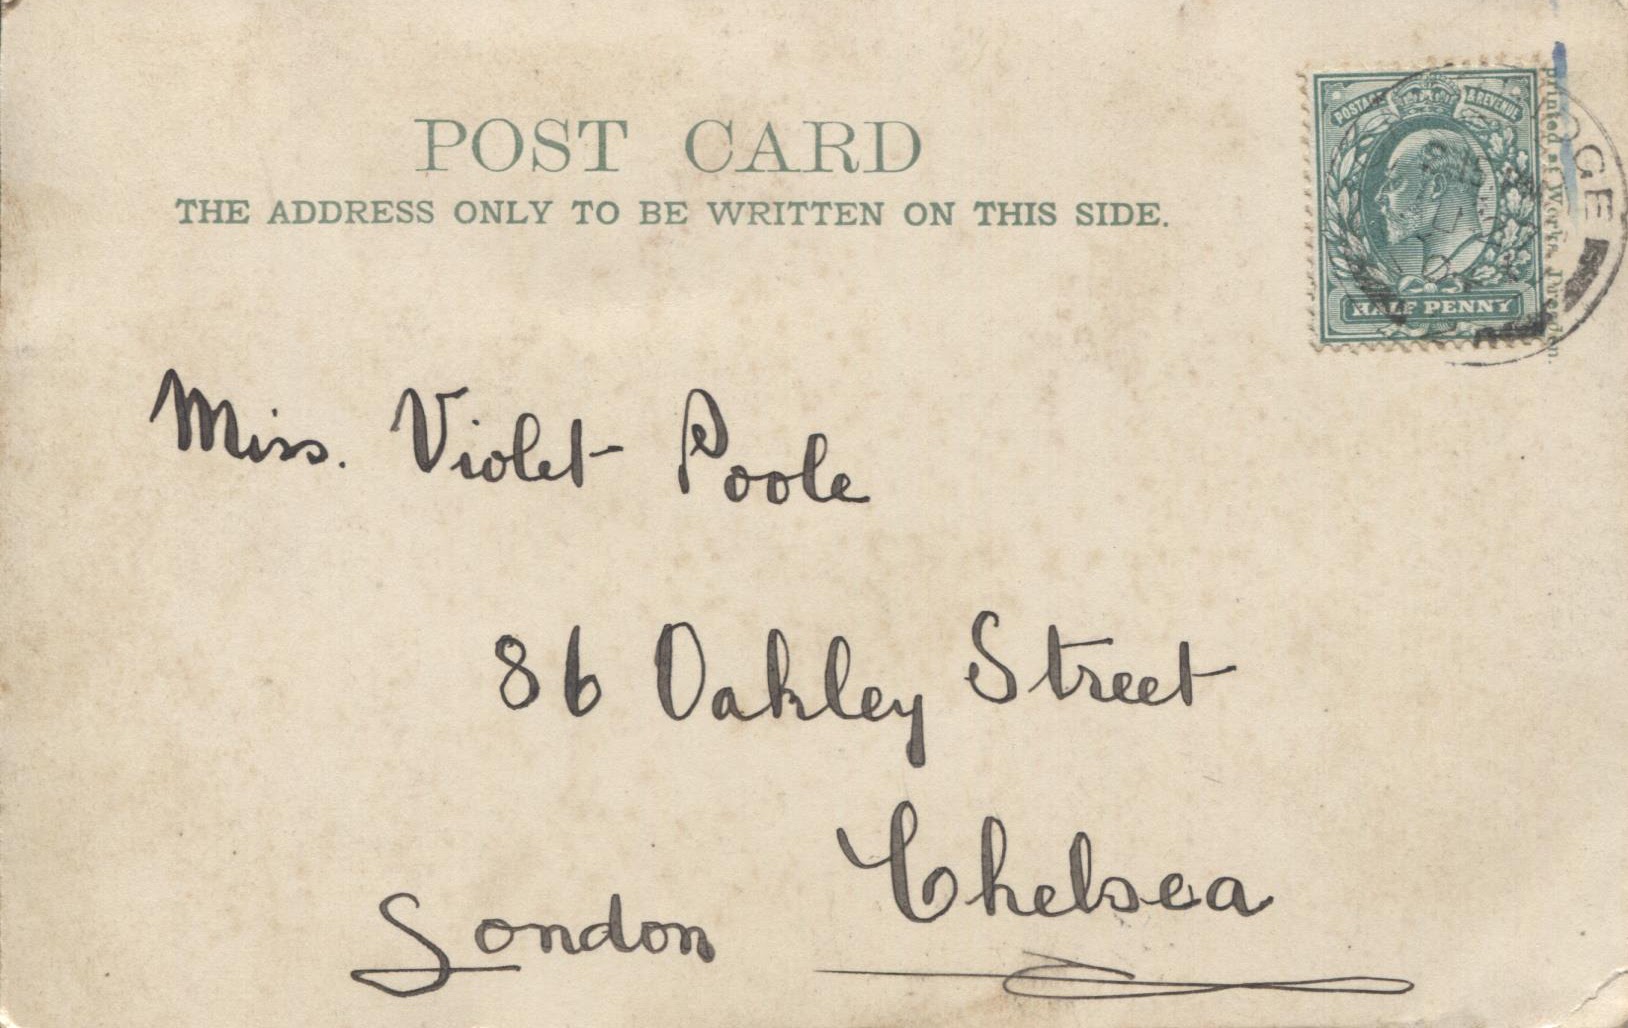 POST CARD
THE ADDRESS ONLY TO BE WRITTEN ON THIS SIDE.
POSTAGE & REVENUE
HALF PENNY
Printed at Works, Dresden.
Miss. Violet Poole
86 Oakley Street
Chelsea
London